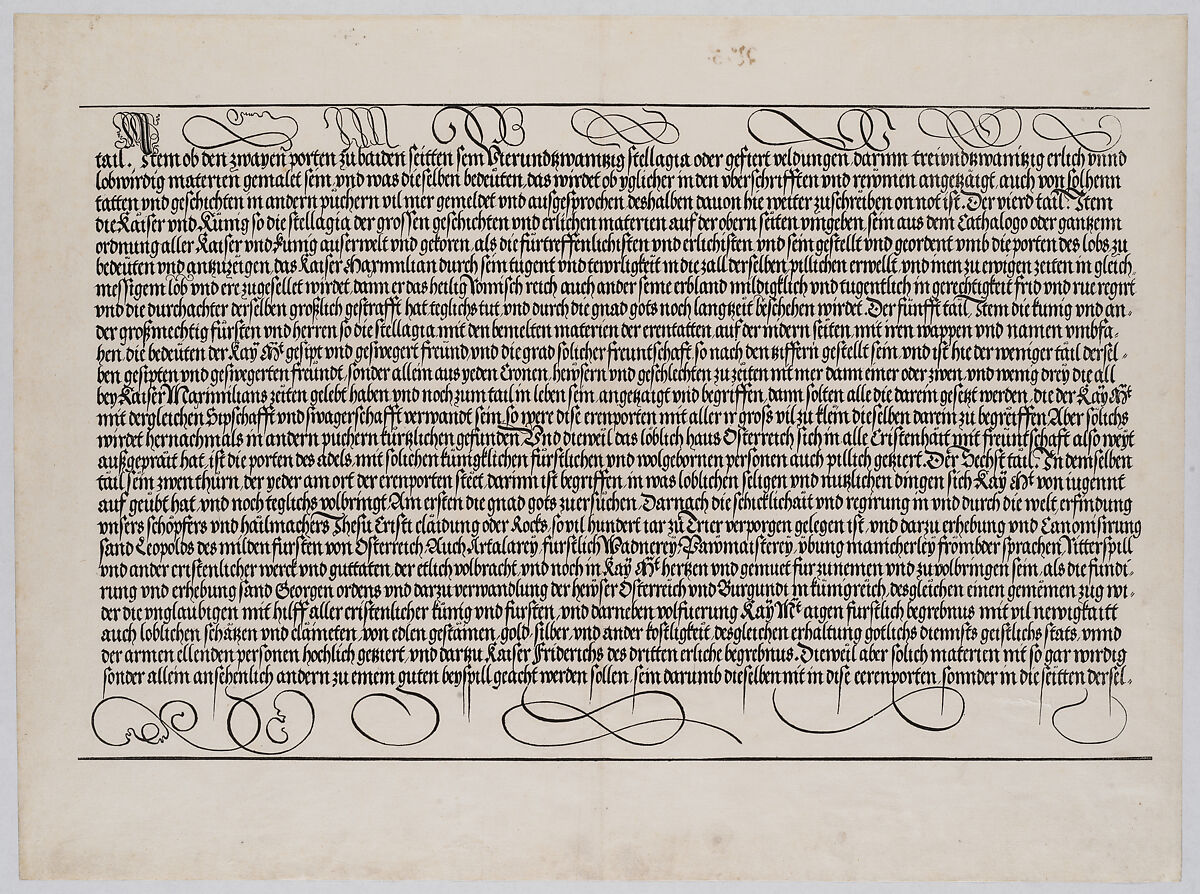 tail. Item ob den zwayen porten zu baiden seitten sein Vierundtzwaintzig stellagia oder gefiert veldungen darinn treiundtzwaintzig erlich vnnd
lobwirdig materien gemalet sein, vnd was dieselben bedeuten, das wirdet ob yglicher in den vberschrifften vnd reymen angetzaigt, auch von solhenn
tatten vnd geschichten in andern püchern vil mer gemeldet vnd ausgesprochen deshalben dauon hie weiter zuschreiben on not ist. Der vierd tail. Item
die Kaiser vnd Künig so die stellagia der grossen geschichten vnd erlichen materien auf der obern seiten vmgeben, sein aus dem Cathalogo oder gantzenn
ordnung aller Kaiser vnd kunig auserwelt vnd gekoren, als die fürtreffenlichisten vnd erlichisten vnd sein gestellt vnd geordent vmb die porten des lobs, zu
bedeuten vnd antzuzeigen, das Kaiser Maxmilian durch sein tugent vnd tewrligkeit in die zall derselben pillichen erwellt, vnd inen zu ewigen zeiten in gleich
messigem lob vnd ere zugesellet wirdet, dann er das heilig Romisch reich auch ander seine erbland mildigklich vnd tugentlich in gerechtigkeit frid vnd rue regirt
vnd die durchachter derselben großlich gestrafft hat, teglichs tut, vnd durch die gnad gots noch langtzeit beschehen wirdet. Der fünfft tail, Item die kunig vnd an-
der großmechtig fürsten vnd herren so die stellagia mit den bemelten materien der erentatten auf der indern seiten mit iren wappen vnd namen vmbfa-
hen, die bedeuten der Kay Mt gesipt vnd geswegert freund vnd die grad solicher freuntschaft, so nach den tziffern gestellt sein, vnd ist hie der weniger tail dersel-
ben gesipten vnd geswegerten freundt, sonder allein aus yeden Cronen, hewsern vnd geschlechten zu zeiten nit mer dann einer oder zwen, vnd wenig drey die all
bey Kaiser Maximilians zeiten gelebt haben vnd noch zum tail in leben sein, angetzaigt vnd begriffen, dann solten alle die darein gesetzt werden, die der Kay Mt
mit dergleichen Sipschafft vnd swagerschafft verwandt sein, so were dise erenporten mit aller ir groß vil zu klein dieselben darein zu begreiffen, Aber sölichs
wirdet hernachmals in andern püchern kürtzlichen gefunden Vnd dieweil das löblich haus Osterreich sich in alle Cristenhait mit freuntschaft also weyt
außgeprait hat, ist die porten des adels, mit solichen künigklichen fürstlichen vnd wolgebornen personen auch pillich getziert. Der Sechst tail. In demselben
tail sein zwen thürn, der yeder am ort der erenporten steet, darinn ist begriffen, in was loblichen seligen vnd nutzlichen dingen sich Kay Mt von iugennt
auf geübt hat, vnd noch teglichs volbringt, Am ersten die gnad gots zuersüchen, Darnach die schicklichait vnd regirung in vnd durch die welt, erfindung
vnsers schöpfers vnd hailmachers Jhesu Cristi claidung oder Rocks, so vil hundert iar zu Trier verporgen gelegen ist, vnd darzu erhebung vnd Canonisirung
sand Leopolds des milden fursten von Osterreich, Auch Artalarey, fürstlich Waidnerey, Pawmaisterey, vbung manicherley frömbder sprachen, Ritterspill
vnd ander cristenlicher werck vnd guttaten, der etlich volbracht, vnd noch in Kay Mt hertzen vnd gemuet fur zunemen vnd zu volbringen sein, als die fundi-
rung vnd erhebung sand Georgen ordens vnd darzu verwandlung der hewser Osterreich vnd Burgundi in künigreich, desgleichen einen gemeinen zug wi-
der die vnglaubigen mit hilff aller cristenlicher künig vnd fursten, vnd darneben volfuerung Kay Mt aigen fürstlich begrebnus mit vil newigkaitt
auch loblichen schätzen vnd claineten, von edlen gestainen, gold, silber, vnd ander kostligkeit, desgleichen erhaltung gotlichs diennsts geistlichs stats, vnnd
der armen ellenden personen hochlich getziert, vnd dartzu Kaiser Friderichs des dritten erliche begrebnus. Dieweil aber solich materien nit so gar wirdig
sonder allein ansehenlich andern zu einem guten beyspill geacht werden sollen, sein darumb dieselben nit in dise eerenporten, sonnder in die seitten dersel-